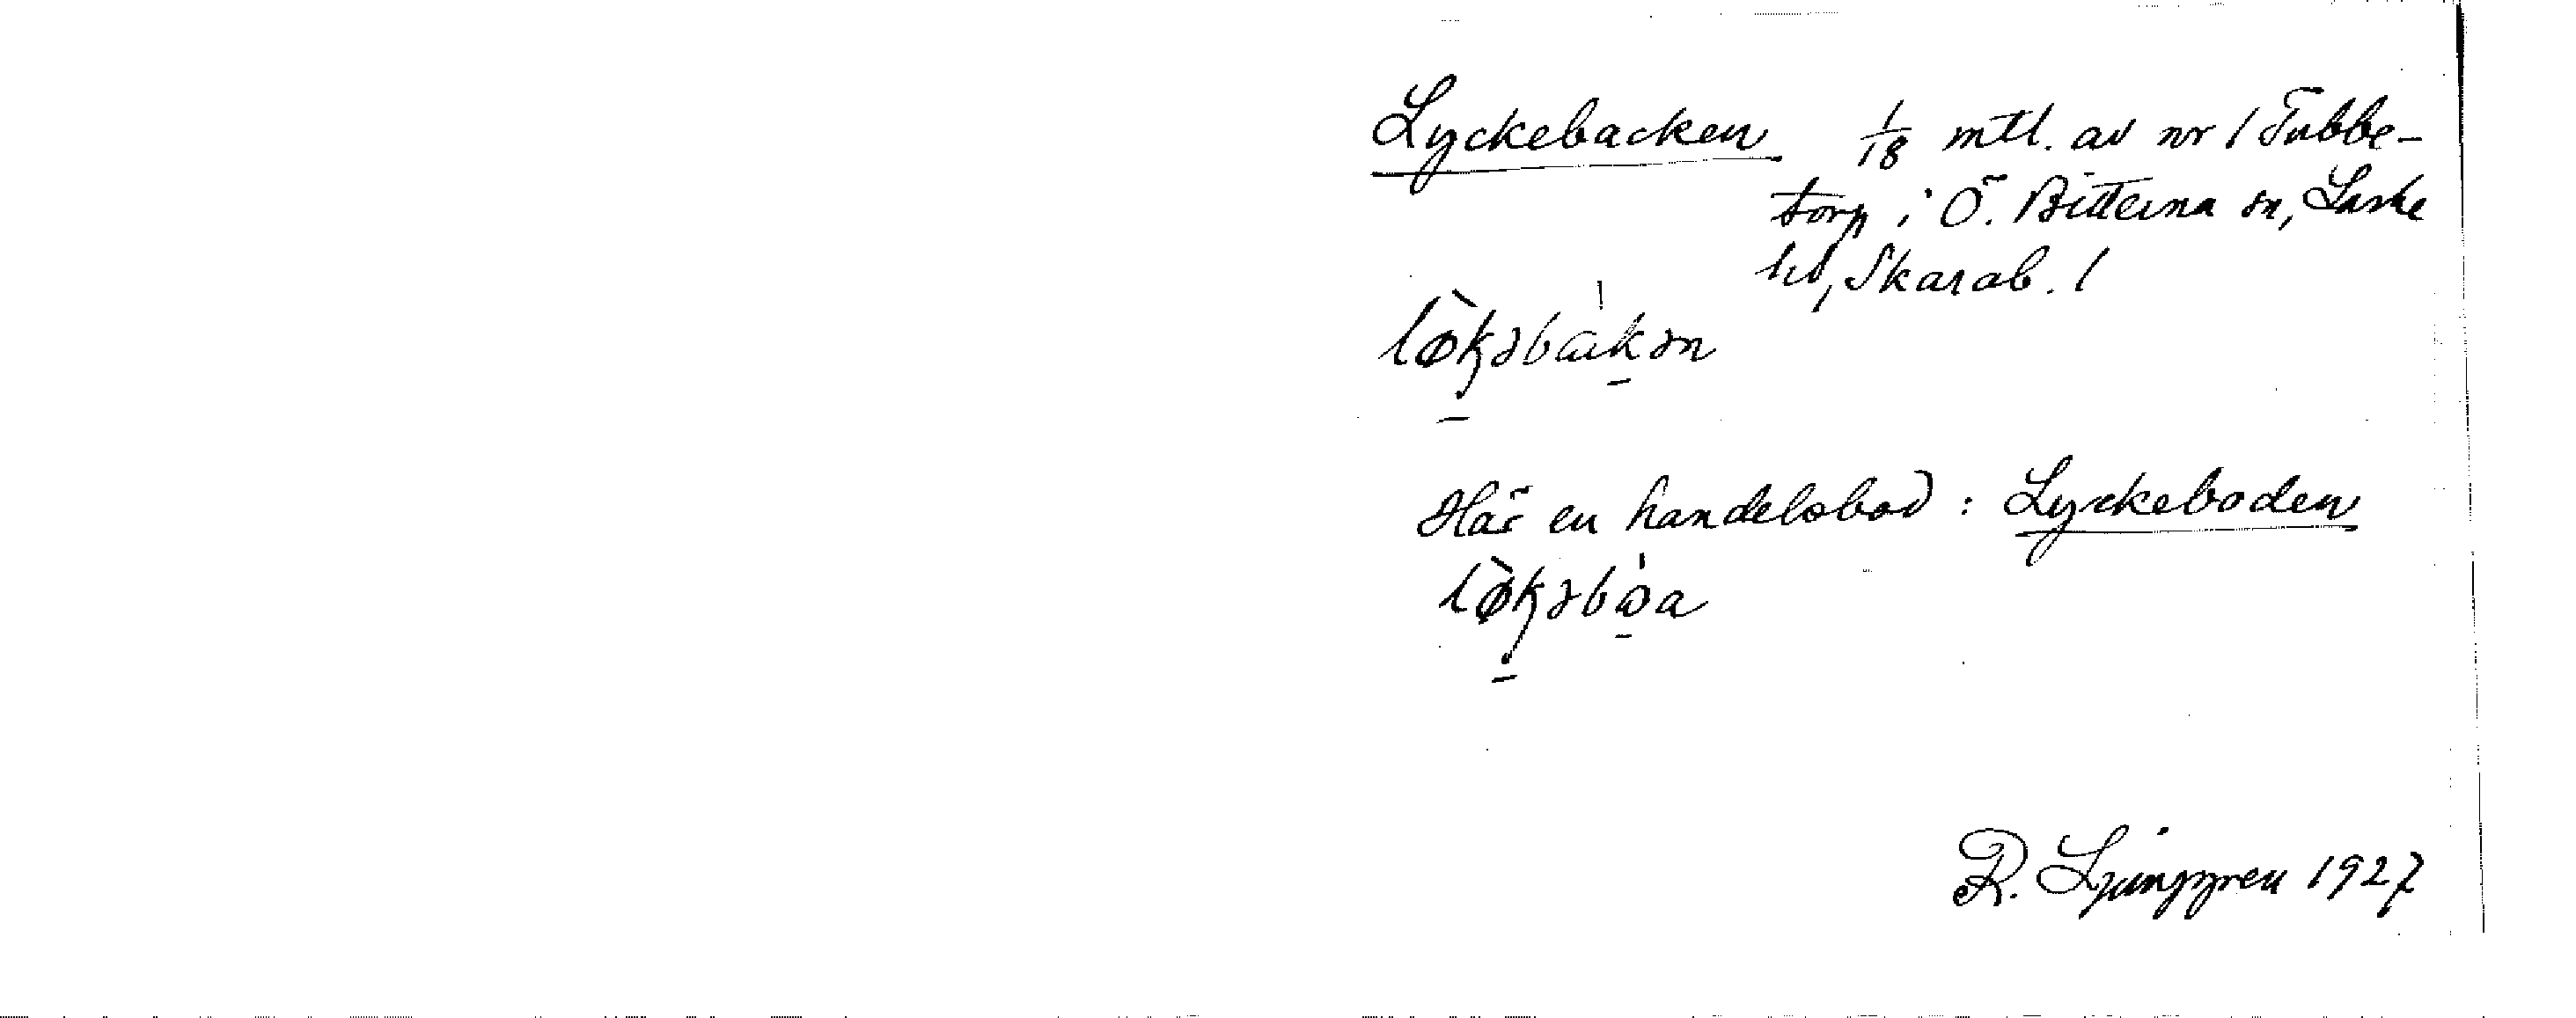 Lyckebacken 1/18 mtl. av nr 1 Tubbe-
torp i Ö. Bitterna sn, Laske
hd, Skarab. l
lø̀kəbàkən
Här en handelsbod: Lyckeboden
lø̀kəbòa
R. Ljunggren 1927